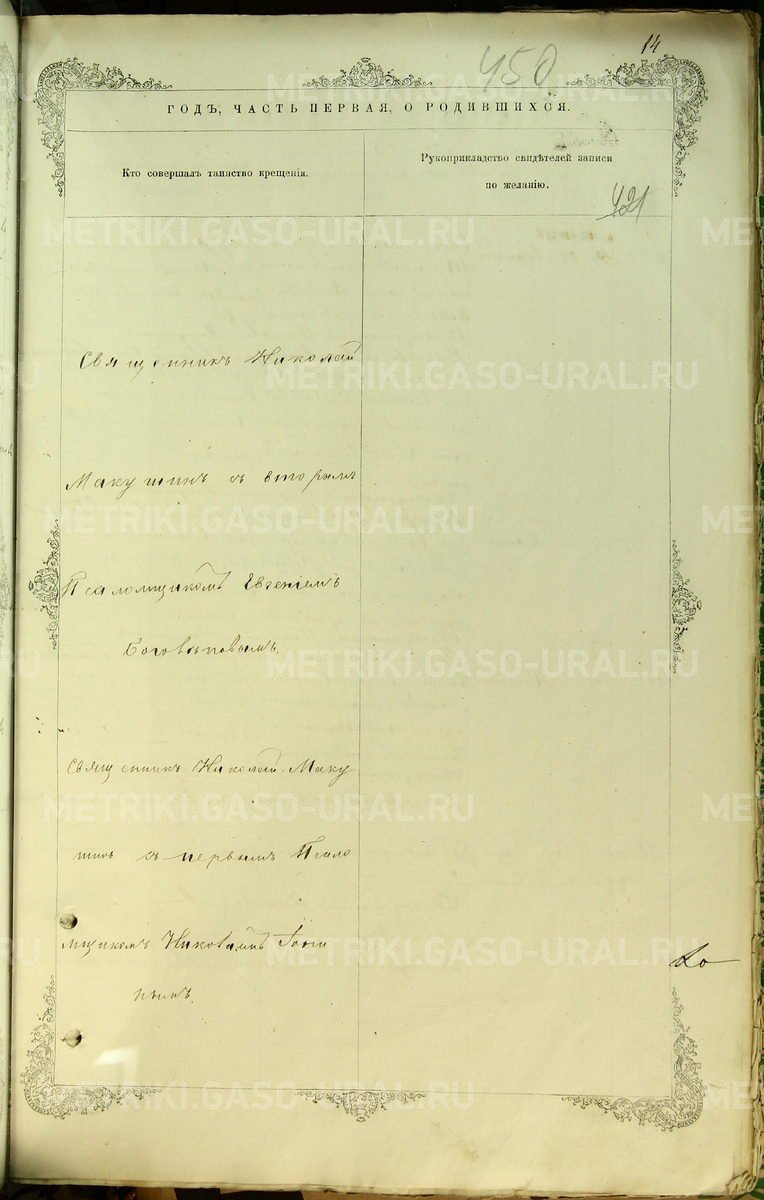 14
450
ГОДЪ, ЧАСТЬ ПЕРВАЯ, О РОДИВШИХСЯ.
Кто совершалъ таинство крещенія.
Рукоприкладство свидѣтелей записи
по желанію.
421
Священникъ Николай
Макушинъ съ вторымъ
Псаломщикомъ Евгеніемъ
Священникъ Николай Маку
шинъ съ первымъ Псало
мщикомъ
METRIKI.GASO-URAL.RU